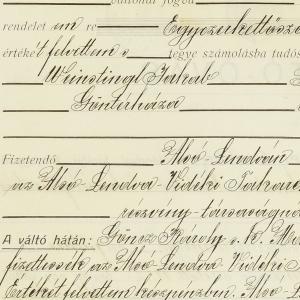 rendelet én re Egyezerkettősz
értékét felvettem s tegye számolásba tudós
Weinstingl Jakab
Göntérháza
Fizetendő Alsó-Lendván
az Alsó-Lendva-Vidéki Takaré
részvény-társaságná
A váltó hátán: Göncz Károly s. k.
fizettessék az Alsó-Lendva Vidéki
Értékét felvettem készpénzben. Alsó